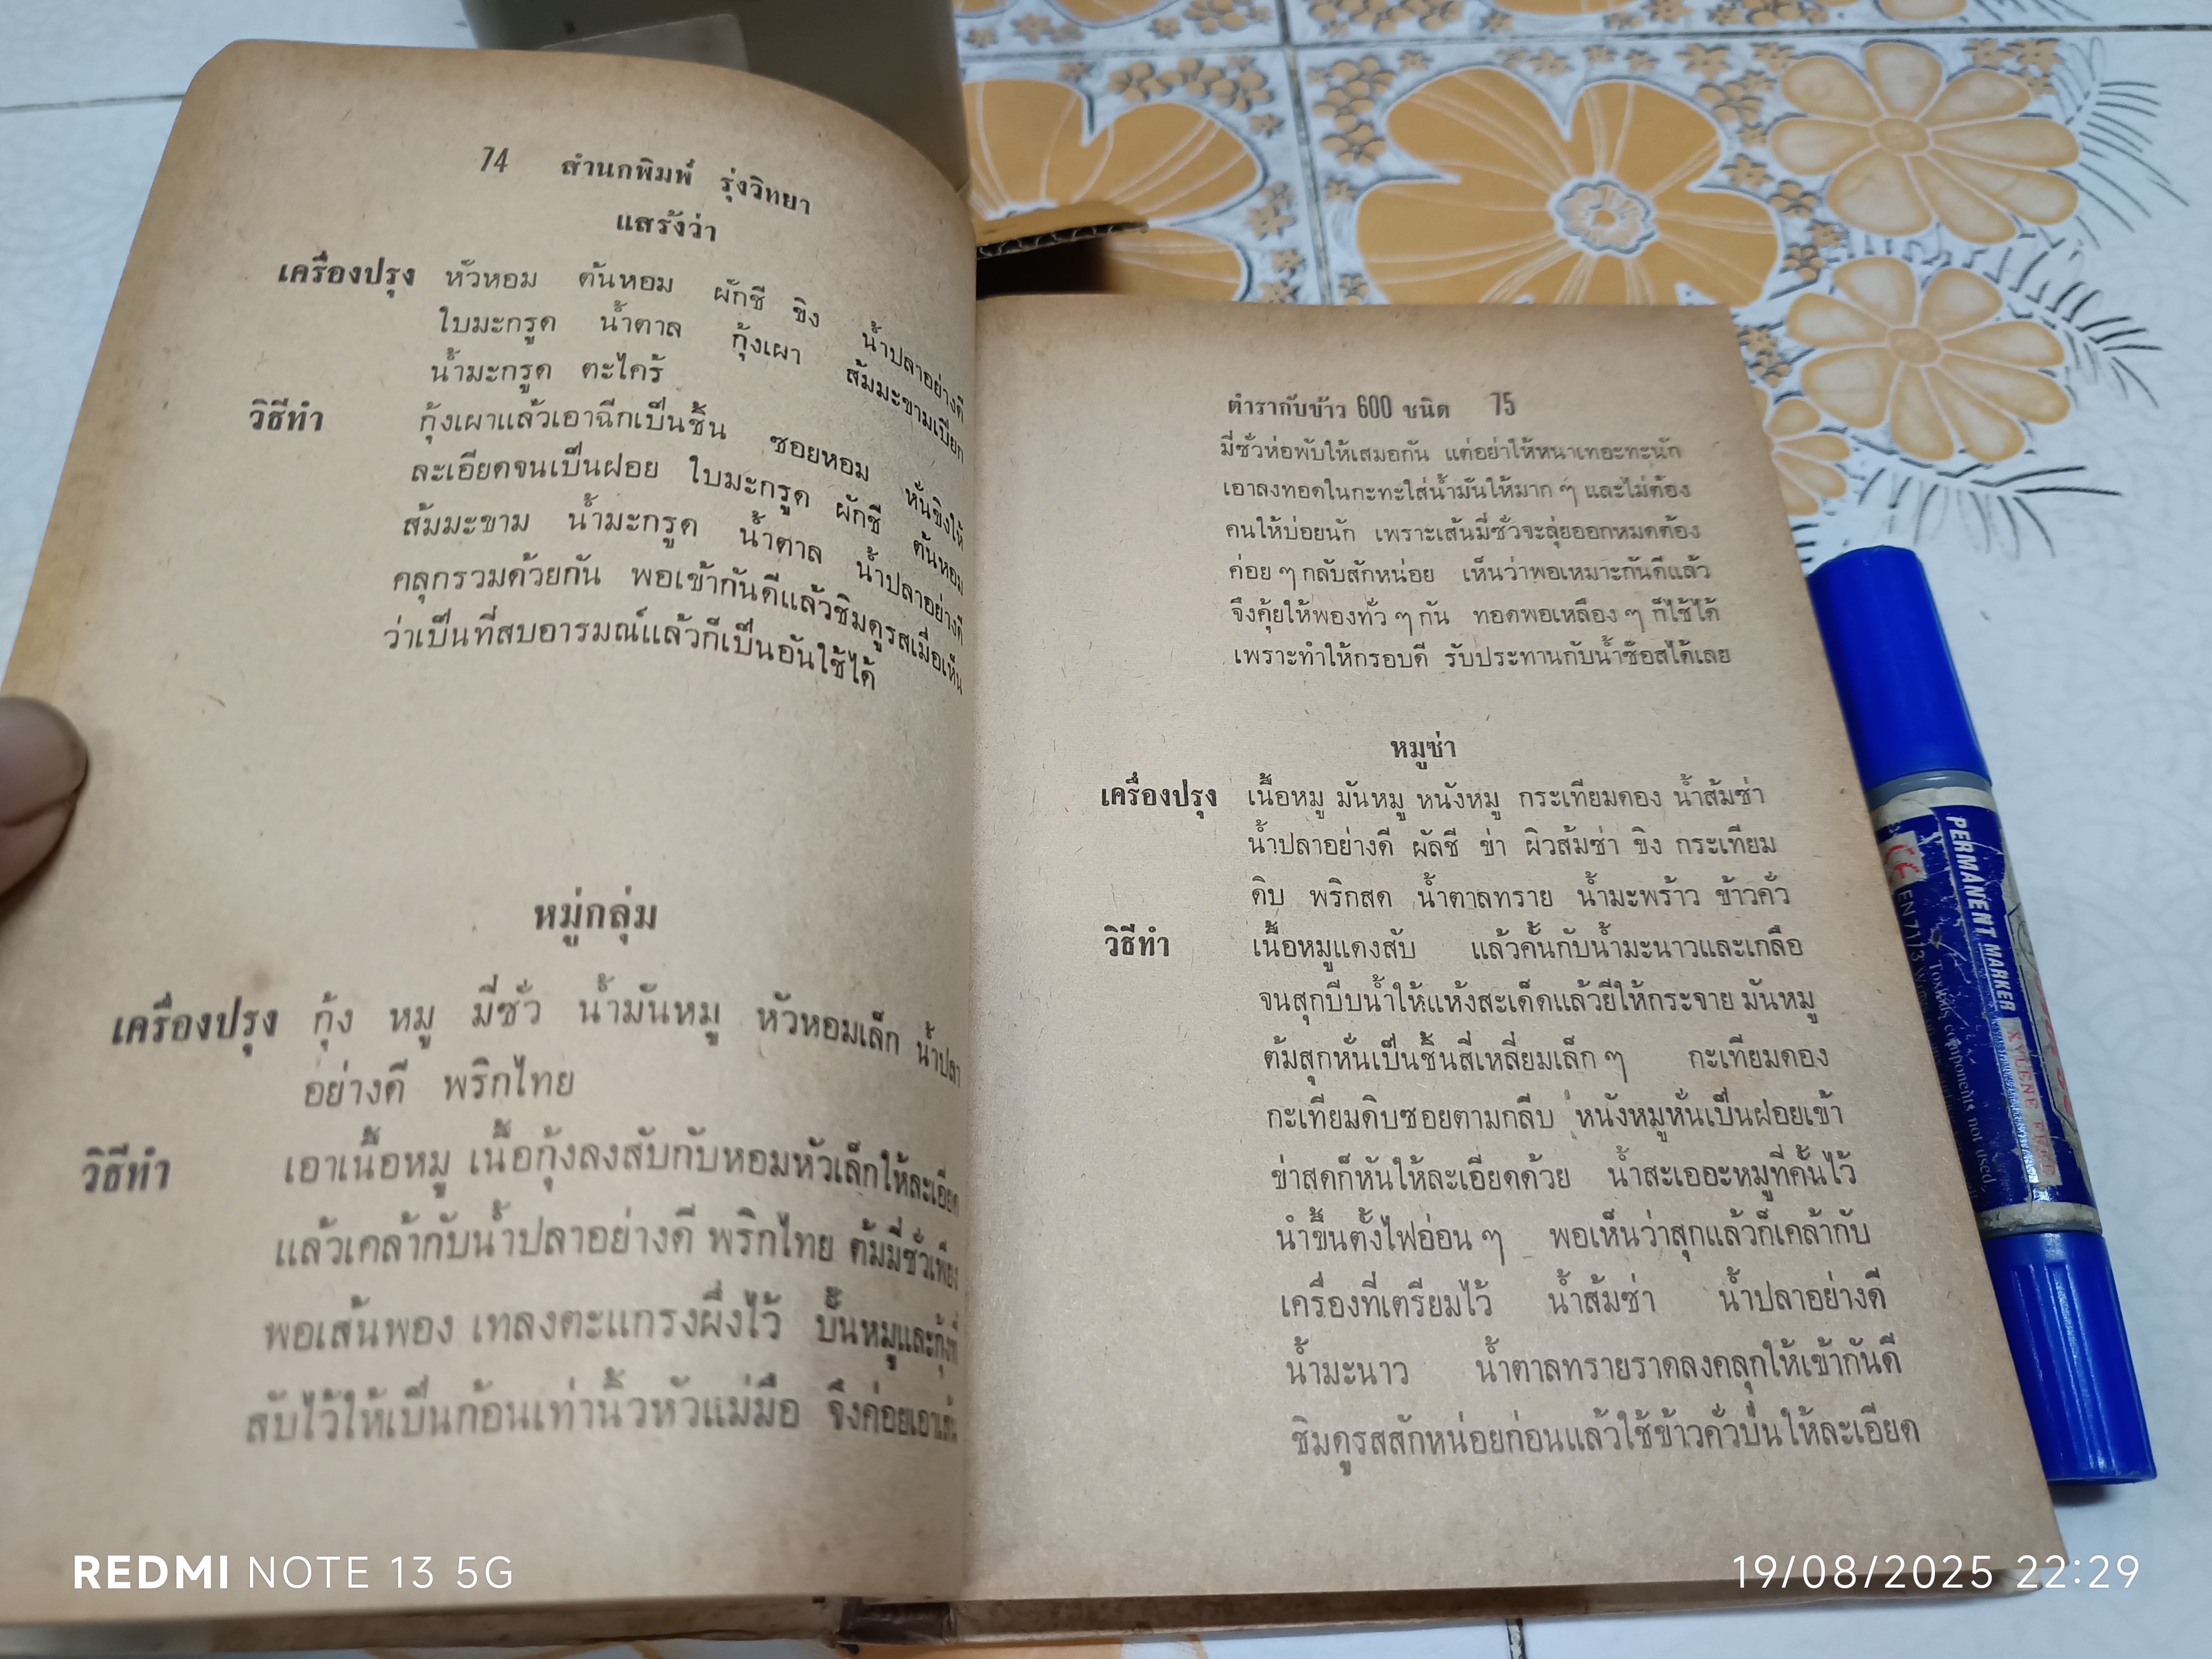 74 สำนกพิมพ์ รุ่งวิทยา
แสร้งว่า
เครื่องปรุง หัวหอม ต้นหอม ผักชี ขิง น้ำปลาอย่างดี
ใบมะกรูด น้ำตาล กุ้งเผา ส้มมะขามเปียก
น้ำมะกรูด ตะไคร้
วิธีทำ กุ้งเผาแล้วเอาฉีกเป็นชิ้น ซอยหอม หั่นขิงให้
ละเอียดจนเป็นฝอย ใบมะกรูด ผักชี ต้นหอม
ส้มมะขาม น้ำมะกรูด น้ำตาล น้ำปลาอย่างดี
คลุกรวมด้วยกัน พอเข้ากันดีแล้วชิมดูรสเมื่อเห็น
ว่าเป็นที่สบอารมณ์แล้วก็เป็นอันใช้ได้
หมู่กลุ่ม
เครื่องปรุง กุ้ง หมู มี่ซั่ว น้ำมันหมู หัวหอมเล็ก น้ำปลา
อย่างดี พริกไทย
วิธีทำ เอาเนื้อหมู เนื้อกุ้งลงสับกับหอมหัวเล็กให้ละเอียด
แล้วเคล้ากับน้ำปลาอย่างดี พริกไทย ต้มมี่ซั่วเพียง
พอเส้นพอง เทลงตะแกรงผึ่งไว้ ปั้นหมูและกุ้งที่
สับไว้ให้เป็นก้อนเท่านิ้วหัวแม่มือ จึงค่อยเอาเส้น
ตำรากับข้าว 600 ชนิด 75
มี่ซั่วห่อพับให้เสมอกัน แต่อย่าให้หนาเทอะทะนัก
เอาลงทอดในกะทะใส่น้ำมันให้มาก ๆ และไม่ต้อง
คนให้บ่อยนัก เพราะเส้นมี่ซั่วจะลุ่ยออกหมดต้อง
ค่อย ๆ กลับสักหน่อย เห็นว่าพอเหมาะกันดีแล้ว
จึงคุ้ยให้พองทั่ว ๆ กัน ทอดพอเหลือง ๆ ก็ใช้ได้
เพราะทำให้กรอบดี รับประทานกับน้ำซ๊อสได้เลย
หมูซ่า
เครื่องปรุง เนื้อหมู มันหมู หนังหมู กระเทียมดอง น้ำส้มซ่า
น้ำปลาอย่างดี ผัลชี ข่า ผิวส้มซ่า ขิง กระเทียม
ดิบ พริกสด น้ำตาลทราย น้ำมะพร้าว ข้าวคั่ว
วิธีทำ เนื้อหมูแดงสับ แล้วคั้นกับน้ำมะนาวและเกลือ
จนสุกบีบน้ำให้แห้งสะเด็ดแล้วยีให้กระจาย มันหมู
ต้มสุกหั่นเป็นชิ้นสี่เหลี่ยมเล็ก ๆ กะเทียมดอง
กะเทียมดิบซอยตามกลีบ หนังหมูหั่นเป็นฝอยเข้า
ข่าสดก็หันให้ละเอียดด้วย น้ำสะเออะหมูที่คั้นไว้
นำขึ้นตั้งไฟอ่อน ๆ พอเห็นว่าสุกแล้วก็เคล้ากับ
เครื่องที่เตรียมไว้ น้ำส้มซ่า น้ำปลาอย่างดี
น้ำมะนาว น้ำตาลทรายราดลงคลุกให้เข้ากันดี
ชิมดูรสสักหน่อยก่อนแล้วใช้ข้าวคั่วป่นให้ละเอียด
PERMANENT MARKER
XYLENE FREE
CE EN 71/3
Toxic components not used
REDMI NOTE 13 5G
19/08/2025 22:29